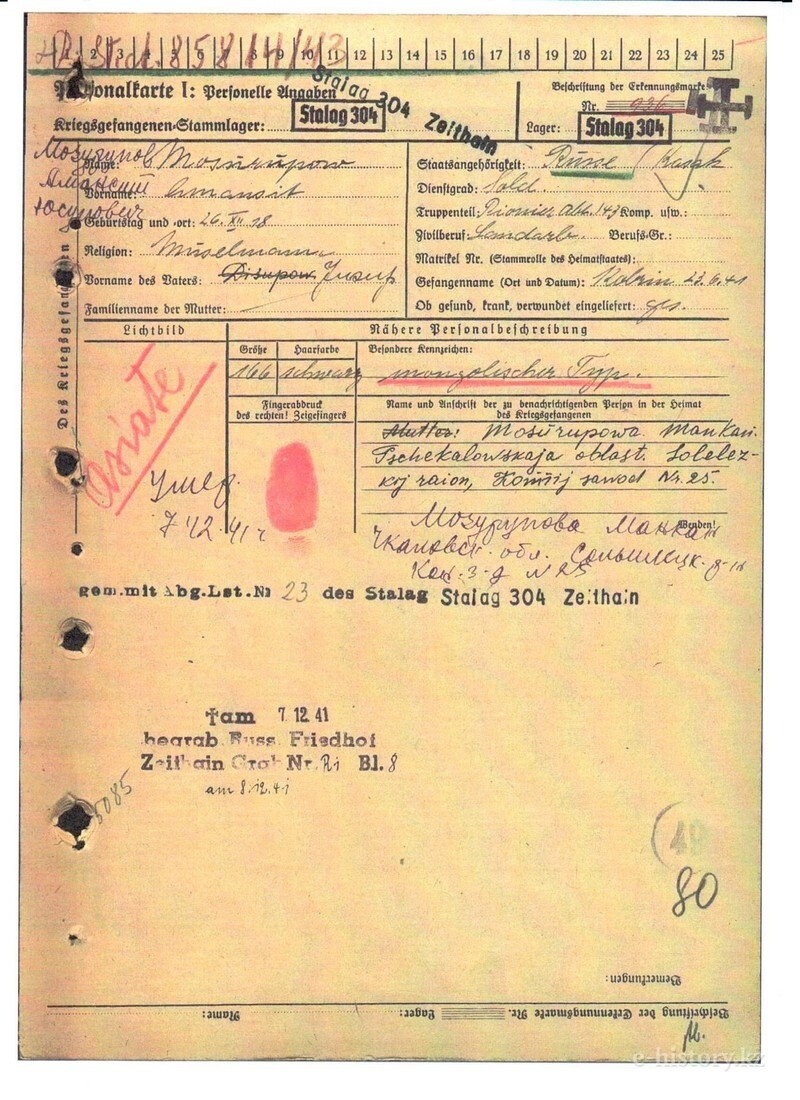 1 2 3 4 5 6 7 8 9 10 11 12 13 14 15 16 17 18 19 20 21 22 23 24 25
Personalkarte I: Personelle Angaben
Stalag 304 Zeithain
Kriegsgefangenen-Stammlager: Stalag 304
Beschriftung der Erkennungsmarke
Nr. 936
Lager: Stalag 304
Des Kriegsgefangenen
Мозурупов
Юсупович
Name: Mosurupow
Vorname: Amansit
Geburtstag und -ort: 26. XII 18
Religion: Muselmann
Vorname des Vaters: Jusuf
Familienname der Mutter:
Staatsangehörigkeit: Russe / Kasak
Dienstgrad: Sold.
Truppenteil: Pionier Abt. 143 Komp. usw.:
Zivilberuf: Landarb. Berufs-Gr.:
Matrikel Nr. (Stammrolle des Heimatstaates):
Gefangenname (Ort und Datum): Kobrin 23.6.41
Ob gesund, krank, verwundet eingeliefert: ges.
Lichtbild
Nähere Personalbeschreibung
Größe
Haarfarbe
Besondere Kennzeichen:
166 schwarz mongolischer Typ.
Fingerabdruck
des rechten! Zeigefingers
Name und Anschrift der zu benachrichtigenden Person in der Heimat
des Kriegsgefangenen
Mutter: Mosurupowa Mankan.
Tschekalowskaja oblast. Solelez-
koj raion, Konnij sawod Nr. 25.
Wenden!
Asiate
Умер
7 12. 41 г
Мозурупова Манкан
Чкаловск. обл. р-н
Кон. з-д N 25
gem. mit Abg.Lst.Nr 23 des Stalag Stalag 304 Zeithain
†am 7. 12. 41
begrab. Russ. Friedhof
Zeithain Grab Nr. Ri Bl. 8
am 8.12.41
5085
49
80
Bemerkungen:
Name:
Beschriftung der Erkennungsmarke Nr. Lager:
e-history.kz